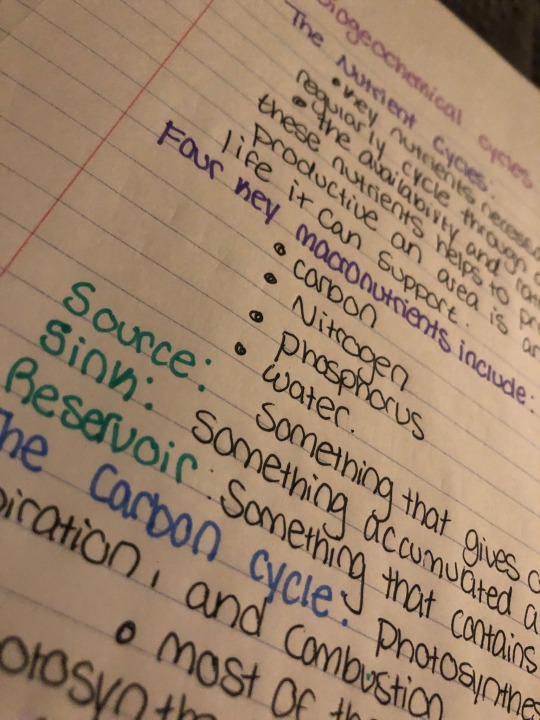 Biogeochemical cycles
The Nutrient cycles:
• Key nutrients
regularly cycle through
• the availability and
these nutrients helps to
productive an area is
life it can support.
Four key macronutrients include:
• carbon
• Nitrogen
• Phosphorus
• water.
Source: Something that gives
Sink: Something accumulated
Reservoir: Something that contains
The Carbon cycle: Photosynthes
piration, and Combustion
• most of
otosynthe